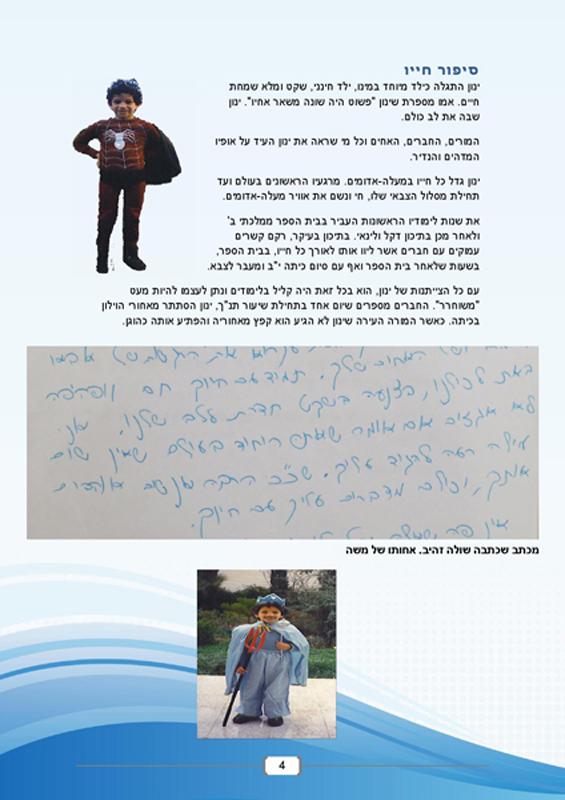 סיפור חייו
ינון התגלה כילד מיוחד במינו, ילד חינני, שקט ומלא שמחת
חיים. אמו מספרת שינון "פשוט היה שונה משאר אחיו". ינון
שבה את לב כולם.
המורים, החברים, האחים וכל מי שראה את ינון העיד על אופיו
המדהים והנדיר.
ינון גדל כל חייו במעלה-אדומים. מרגעיו הראשונים בעולם ועד
תחילת מסלול הצבאי שלו, חי ונשם את אוויר מעלה-אדומים.
את שנות לימודיו הראשונות העביר בבית הספר ממלכתי ב'
ולאחר מכן בתיכון דקל וילנאי. בתיכון בעיקר, רקם קשרים
עמוקים עם חברים אשר ליוו אותו לאורך כל חייו, בבית הספר,
בשעות שלאחר בית הספר ואף עם סיום כיתה י"ב ומעבר לצבא.
עם כל הצייתנות של ינון, הוא בכל זאת היה קליל בלימודים ונתן לעצמו להיות מעט
"משוחרר". החברים מספרים שיום אחד בתחילת שיעור תנ"ך, ינון הסתתר מאחורי הוילון
בכיתה. כאשר המורה העירה שינון לא הגיע הוא קפץ מאחוריה והפתיע אותה כהוגן.
האחוב שלך. תמיד עם חיוך חם
באת לכולנו, בצנעה בשקט חדרת ללב שלנו. אני
לא אגזים אם אומר שאתה היחיד בעולם שאין שום
מילה רעה להגיד עליך. שכ"כ הרבה אנשים אוהבים
אותך, וכולם מדברים עליך עם חיוך.
אין פה
מכתב שכתבה שולה זהיב, אחותו של משה
4